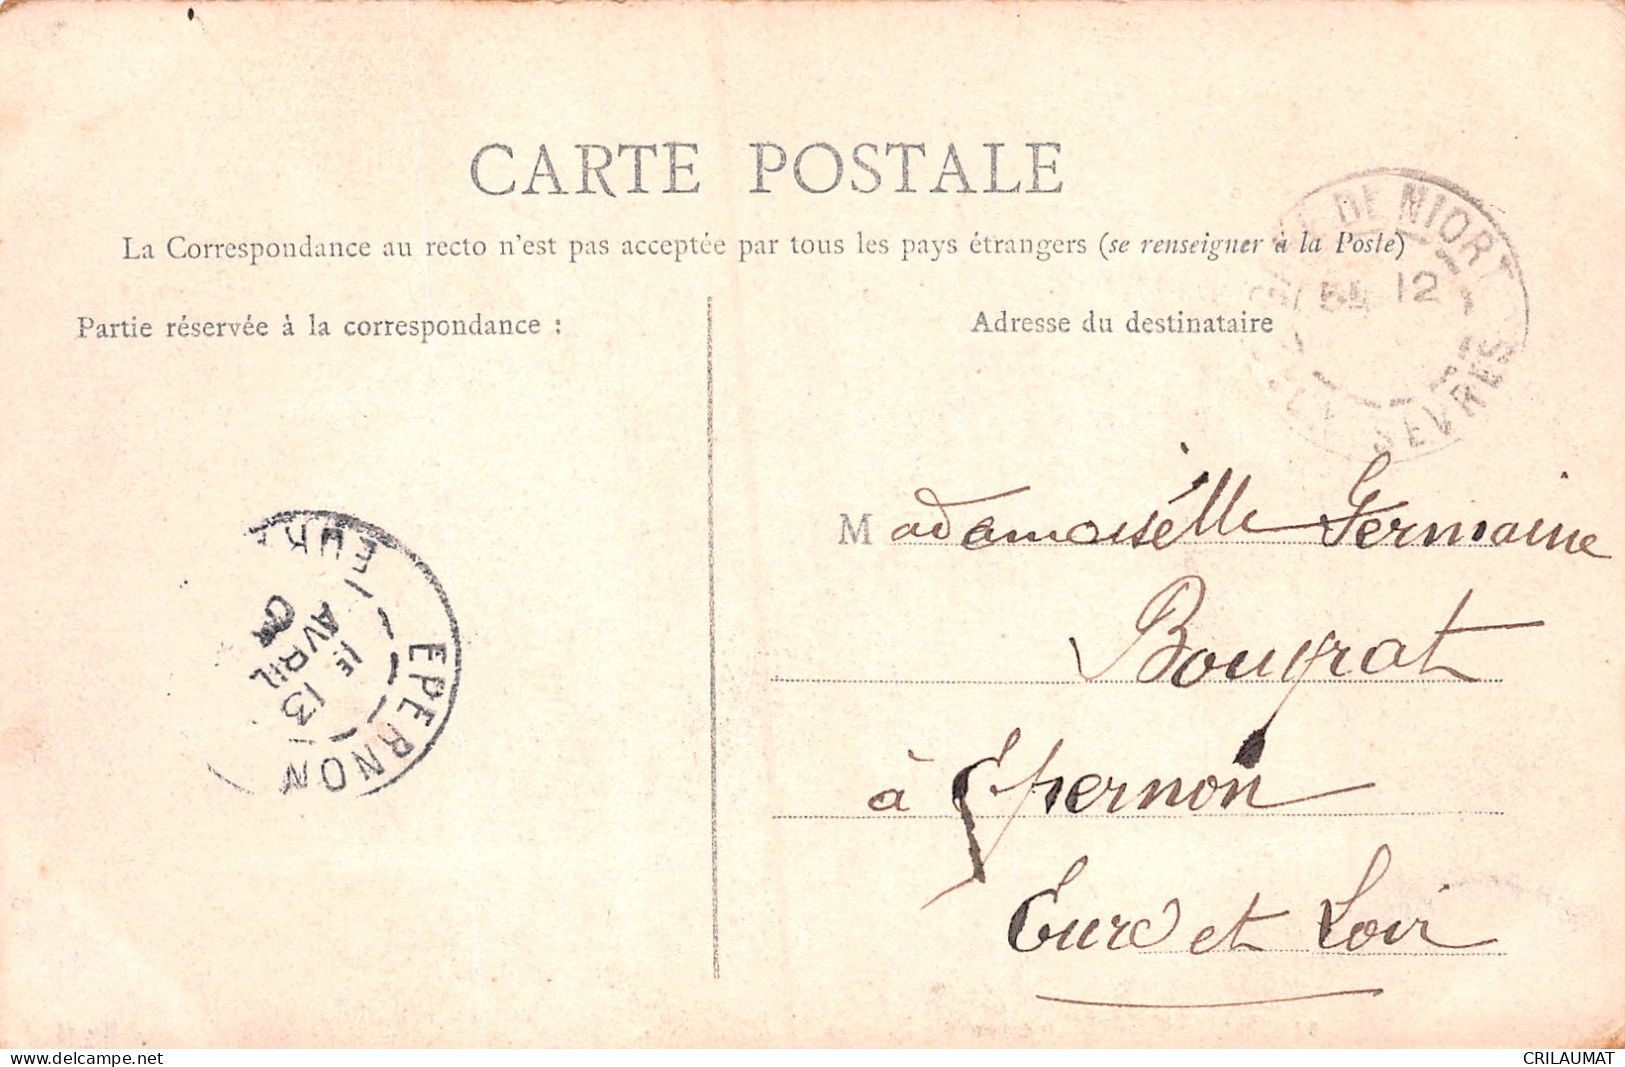 CARTE POSTALE
La Correspondance au recto n'est pas acceptée par tous les pays étrangers (se renseigner à la Poste)
Partie réservée à la correspondance :
Adresse du destinataire
DE NIORT
12
SEVRES
Mademoiselle Germaine
Bougrat
à Epernon
Eure et Loir
EPERNON
1E
AVRIL
13
CRILAUMAT